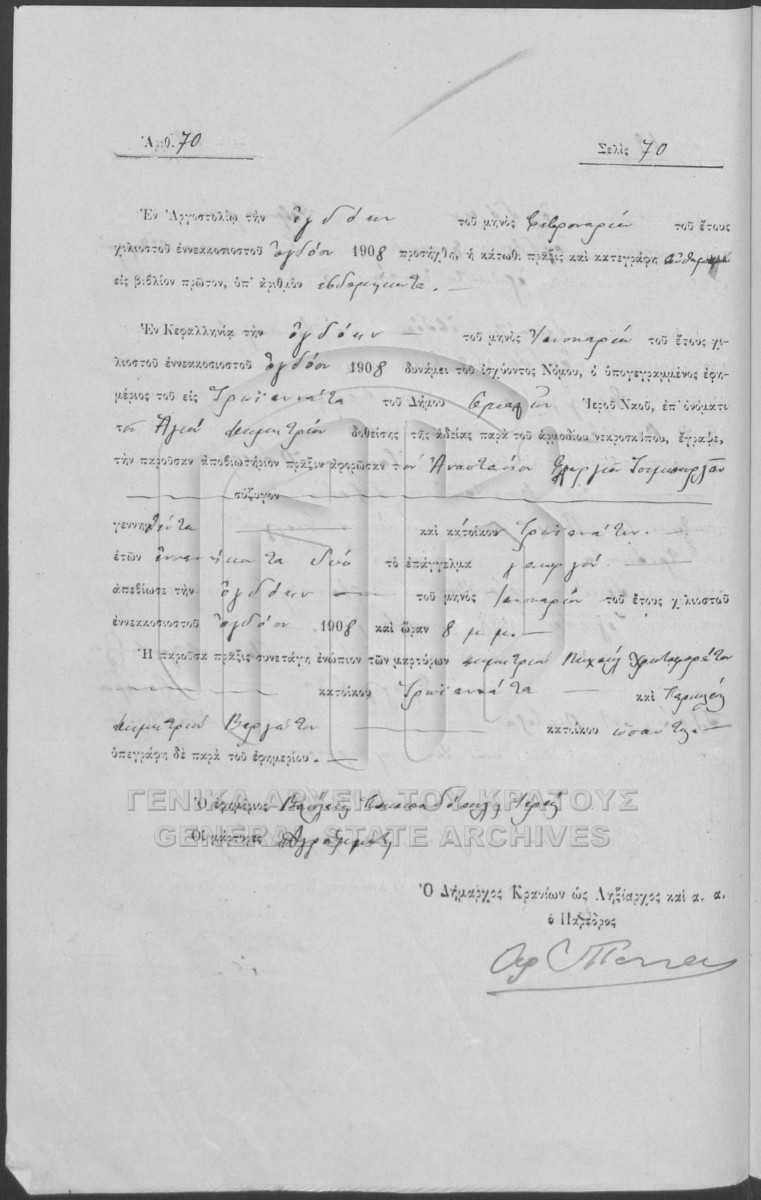 Ἀριθ. 70
Σελὶς 70
Ἐν Ἀργοστολίῳ τὴν ὀγδόην τοῦ μηνὸς Φεβρουαρίου τοῦ ἔτους
χιλιοστοῦ ἐννεακοσιοστοῦ ὀγδόου 1908 προσήχθη, ἡ κάτωθι πρᾶξις καὶ κατεγράφη αὐθημερὸν
εἰς βιβλίον πρῶτον, ὑπ' ἀριθμὸν ἑβδομήκοντα. —
Ἐν Κεφαλληνίᾳ τὴν ὀγδόην — τοῦ μηνὸς Ἰανουαρίου τοῦ ἔτους χι-
λιοστοῦ ἐννεακοσιοστοῦ ὀγδόου 1908 δυνάμει τοῦ ἰσχύοντος Νόμου, ὁ ὑπογεγραμμένος ἐφη-
μέριος τοῦ εἰς Τρωϊαννάτα τοῦ Δήμου Ἱεροῦ Ναοῦ, ἐπ' ὀνόματι
τοῦ Ἁγίου Δημητρίου δοθείσης τῆς ἀδείας παρὰ τοῦ ἁρμοδίου νεκροσκόπου, ἔγραψε,
τὴν παροῦσαν ἀποβιωτήριον πρᾶξιν ἀφορῶσαν τὸν Ἀναστάσιον Γεωργίου
σύζυγον
γεννηθέντα — καὶ κάτοικον Τρωϊαννάτων. —
ἐτῶν ἐννενήκοντα δύο τὸ ἐπάγγελμα γεωργοῦ —
ἀπεβίωσε τὴν ὀγδόην — τοῦ μηνὸς Ἰανουαρίου τοῦ ἔτους χιλιοστοῦ
ἐννεακοσιοστοῦ ὀγδόου 1908 καὶ ὥραν 8 μ.μ. —
Ἡ παροῦσα πρᾶξις συνετάγη ἐνώπιον τῶν μαρτύρων Δημητρίου Μιχαὴλ
κατοίκου Τρωϊαννάτα — καὶ Περικλέους
Δημητρίου Βεργώτου — κατοίκου ὡσαύτως —
ὑπεγράφη δὲ παρὰ τοῦ ἐφημερίου. —
Ὁ ἐφημέριος Βασίλειος Ἱερεὺς
Οἱ μάρτυρες Ἀγράμματοι
ΓΕΝΙΚΑ ΑΡΧΕΙΑ ΤΟΥ ΚΡΑΤΟΥΣ
GENERAL STATE ARCHIVES
Ὁ Δήμαρχος Κρανίων ὡς Ληξίαρχος καὶ α. α.
ὁ Πάρεδρος